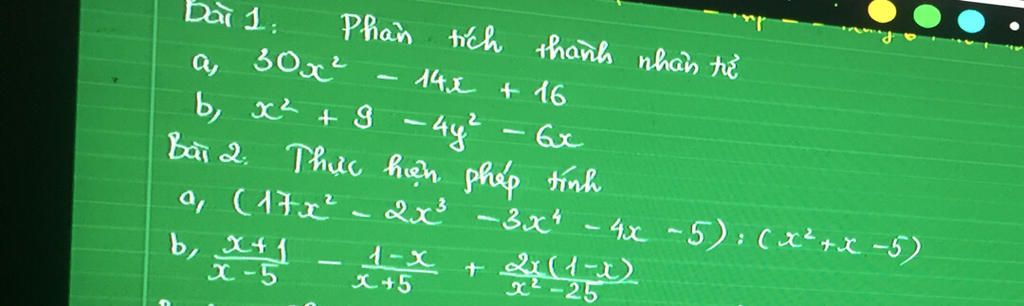 Bài 1: Phân tích thành nhân tử
a, 30x² - 14x + 16
b, x² + 9 - 4y² - 6x
Bài 2. Thực hiện phép tính
a, (17x² - 2x³ - 3x⁴ - 4x - 5) : (x² + x - 5)
b, \frac{x+1}{x-5} - \frac{1-x}{x+5} + \frac{2x(1-x)}{x²-25}